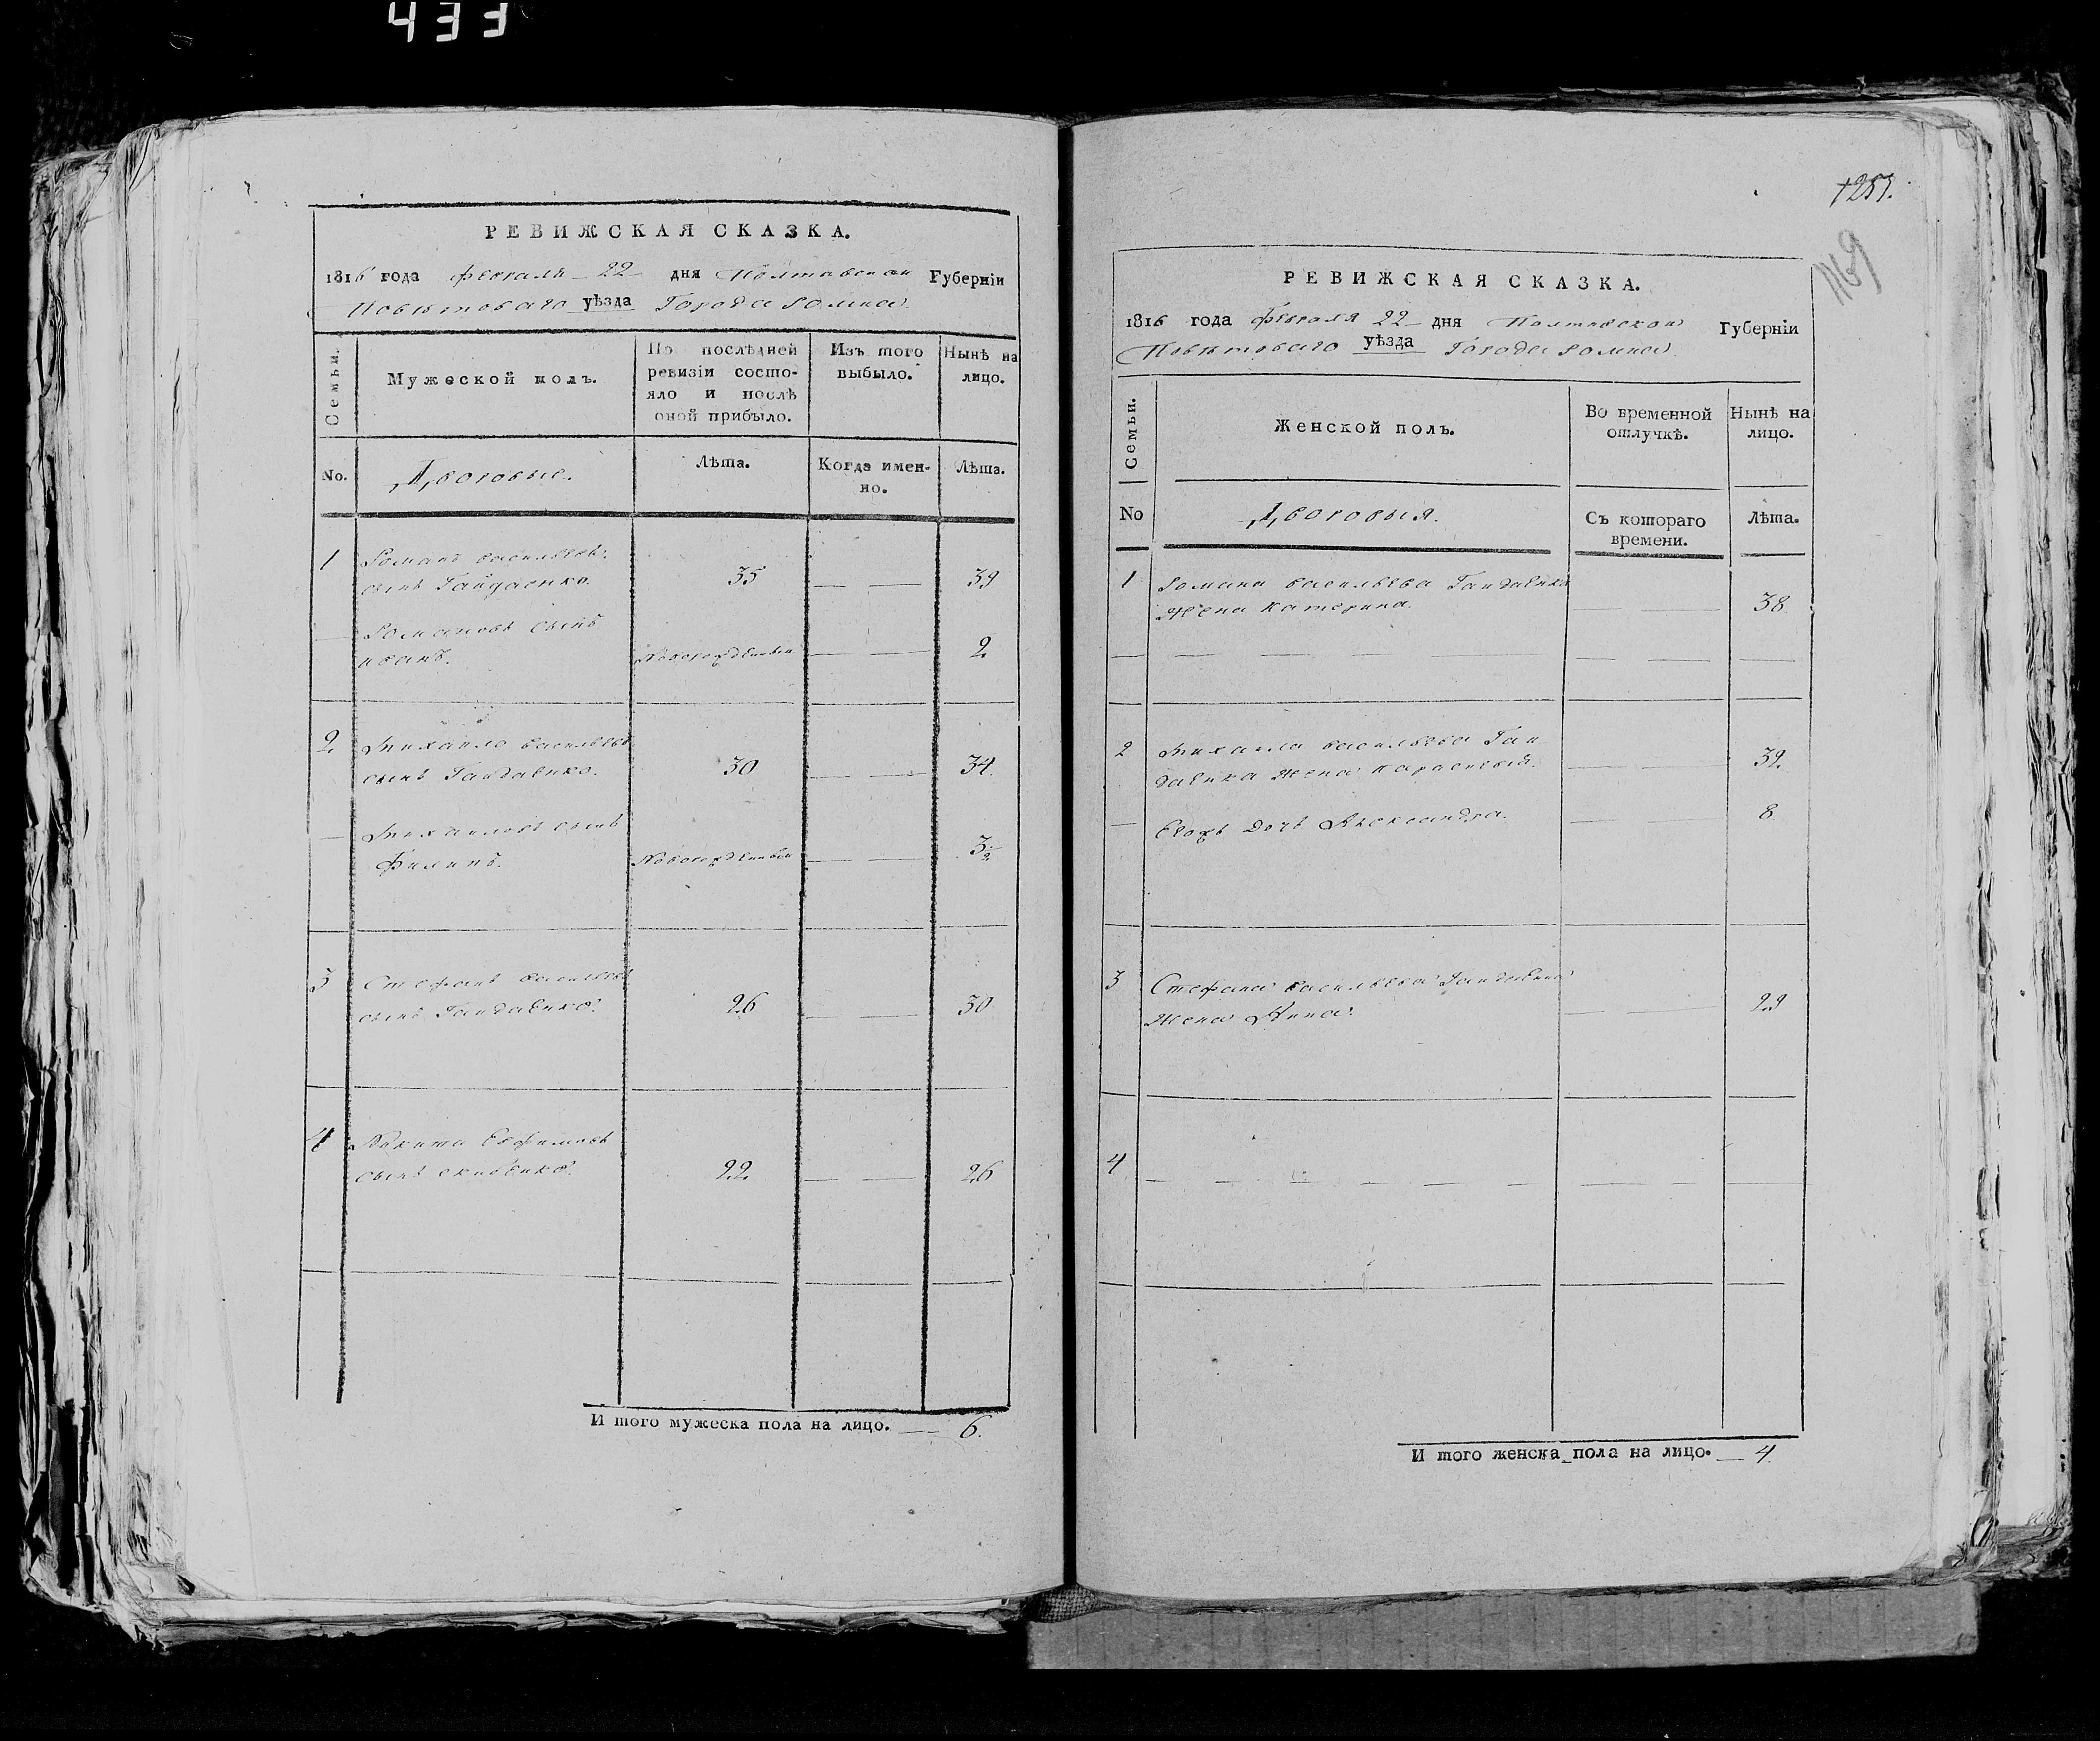 433
РЕВИЖСКАЯ СКАЗКА.
1816 года февраля 22 дня Полтавской Губерніи
Повѣтоваго уѣзда Города Ромна
Семьи.
Мужеской полъ.
По послѣдней ревизіи состояло и послѣ оной прибыло.
Изъ того выбыло.
Нынѣ на лицо.
No.
Дворовые.
Лѣта.
Когда именно.
Лѣта.
1 Романъ васильевъ
сынъ Гайдаенко 35 — — 39
— Романовъ сынъ
иванъ. Новорожденный — — 2
2 Михайло васильевъ
сынъ Гайдаенко. 30 — — 34
— Михайловъ сынъ
Филипъ. Новорожденный — — 3½
3 Стефанъ васильевъ
сынъ Гайдаенко. 26 — — 30
4 Никита Евфимовъ
сынъ 22 — — 26
И того мужеска пола на лицо. — 6.
1257.
1169
РЕВИЖСКАЯ СКАЗКА.
1816 года Февраля 22 дня Полтавской Губерніи
Повѣтоваго уѣзда Города Ромна
Семьи.
Женской полъ.
Во временной отлучкѣ.
Нынѣ на лицо.
No
Дворовыя.
Съ котораго времени.
Лѣта.
1 Романа васильева Гайдаенка
жена катерина. — — 38
2 Михайла васильева Гай
даенка жена параскевья. — — 32
— Евожъ дочь Александра. — — 8
3 Стефана васильева Гайдаенка
жена Анна. — — 23
4 — — — — — —
И того женска пола на лицо. — 4.